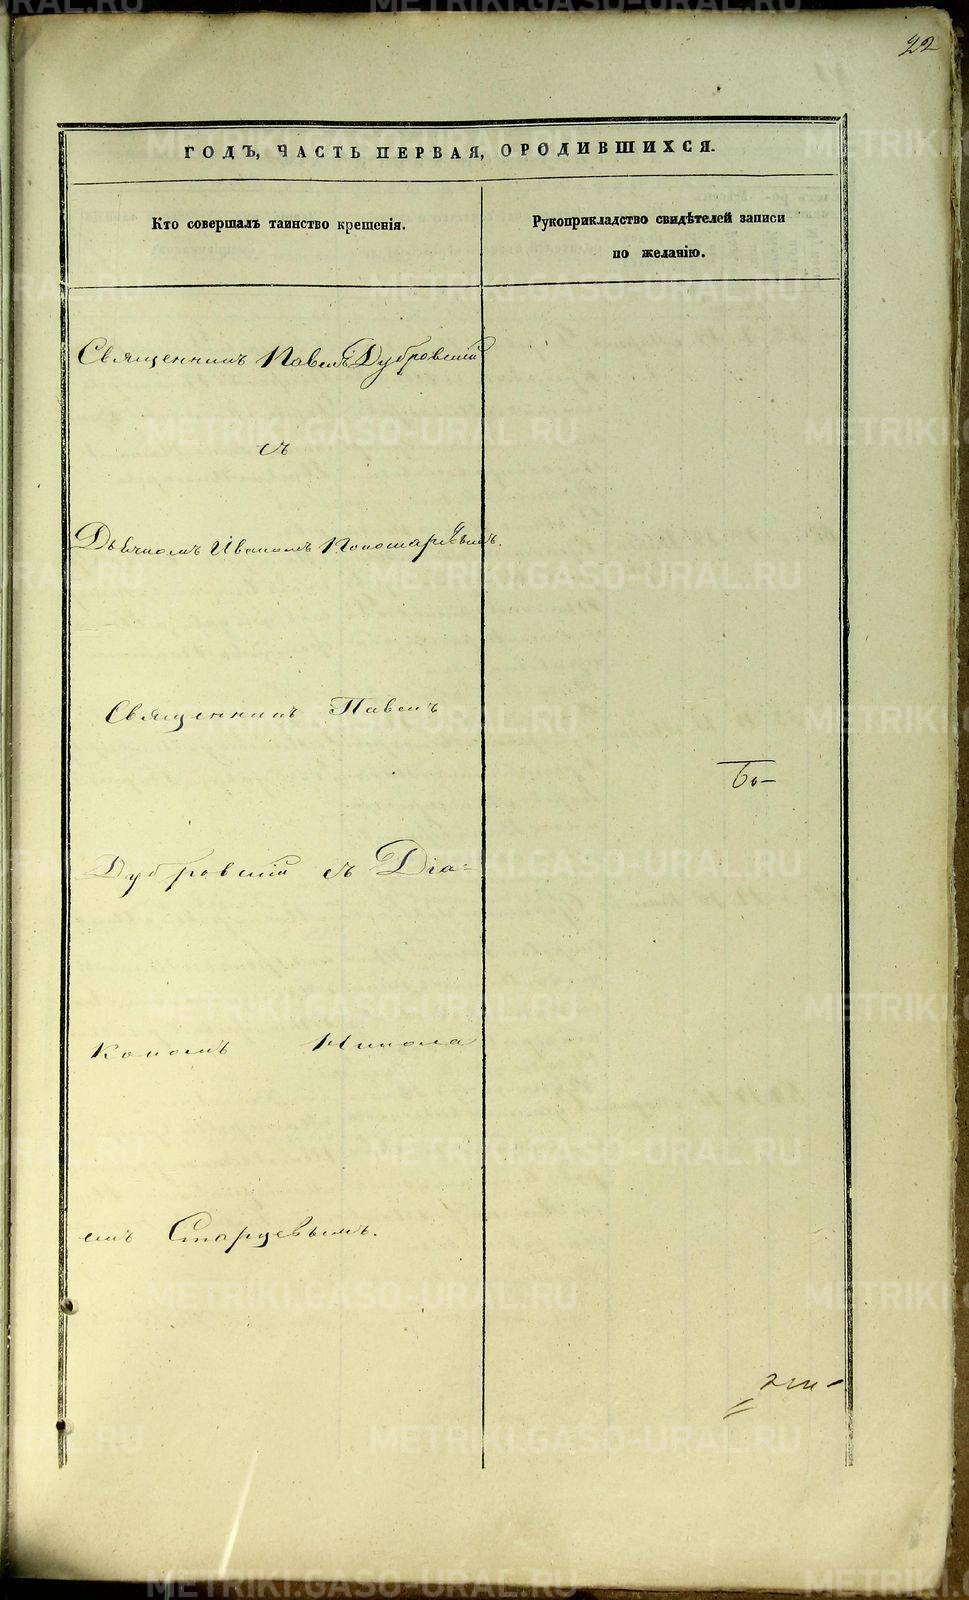 22
ГОДЪ, ЧАСТЬ ПЕРВАЯ, О РОДИВШИХСЯ.
Кто совершалъ таинство крещенія.
Рукоприкладство свидѣтелей записи
по желанію.
Священникъ Павелъ Дубровскій
съ
Дьячкомъ Иваномъ Пономаревымъ.
Священникъ Павелъ
Дубровскій съ Діа-
кономъ Никола
емъ Старцевымъ.
METRIKI.GASO-URAL.RU